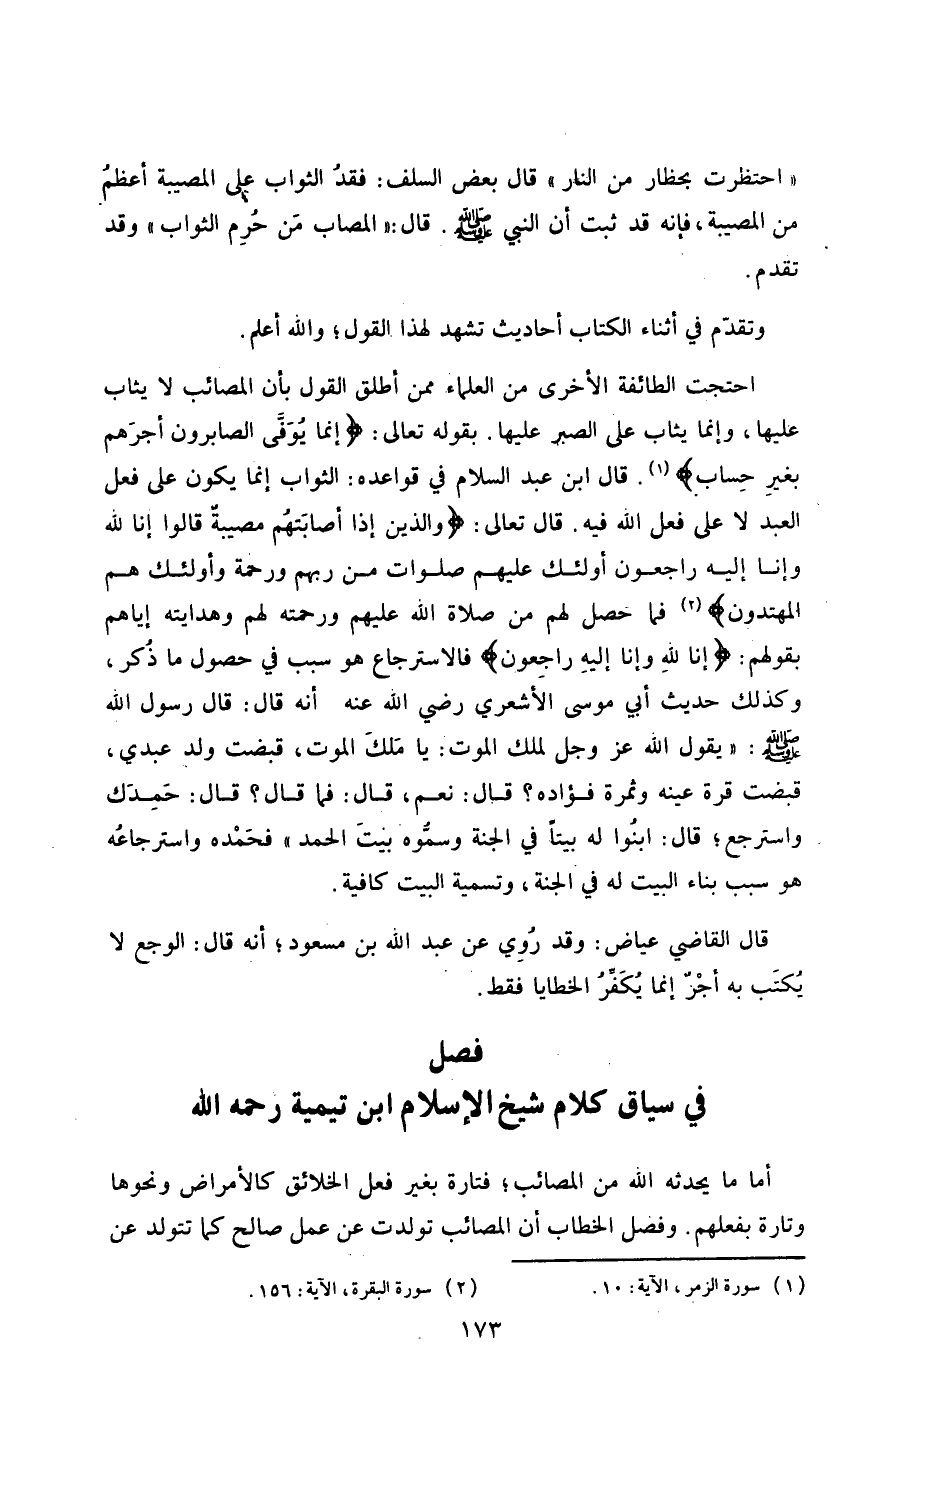 « احتظرت بحظار من النار » قال بعض السلف: فقدُ الثواب على المصيبة أعظمُ
من المصيبة، فإنه قد ثبت أن النبي ﷺ . قال:« المصاب مَن حُرِم الثواب » وقد
تقدم.
وتقدّم في أثناء الكتاب أحاديث تشهد لهذا القول؛ والله أعلم.
احتجت الطائفة الأخرى من العلماء ممن أطلق القول بأن المصائب لا يثاب
عليها، وإنما يثاب على الصبر عليها. بقوله تعالى: ﴿إنما يُوَفَّى الصابرون أجرَهم
بغيرِ حِساب﴾ (١). قال ابن عبد السلام في قواعده: الثواب إنما يكون على فعل
العبد لا على فعل الله فيه. قال تعالى: ﴿والذين إذا أصابَتهُم مصيبةٌ قالوا إنا لله
وإنا إليه راجعون أولئك عليهم صلوات من ربهم ورحمة وأولئك هم
المهتدون﴾ (٢) فما حصل لهم من صلاة الله عليهم ورحمته لهم وهدايته إياهم
بقولهم: ﴿إنا للهِ وإنا إليهِ راجِعون﴾ فالاسترجاع هو سبب في حصول ما ذُكر،
وكذلك حديث أبي موسى الأشعري رضي الله عنه أنه قال: قال رسول الله
ﷺ : « يقول الله عز وجل لملك الموت: يا مَلكَ الموت، قبضت ولد عبدي،
قبضت قرة عينه وثمرة فؤاده؟ قال: نعم، قال: فما قال؟ قال: حَمِدَك
واسترجع؛ قال: ابنُوا له بيتاً في الجنة وسمُّوه بيتَ الحمد » فحَمْده واسترجاعُه
هو سبب بناء البيت له في الجنة، وتسمية البيت كافية.
قال القاضي عياض: وقد رُوِي عن عبد الله بن مسعود؛ أنه قال: الوجع لا
يُكتَب به أجْرٌ إنما يُكَفِّرُ الخطايا فقط.
فصل
في سياق كلام شيخ الإسلام ابن تيمية رحمه الله
أما ما يحدثه الله من المصائب؛ فتارة بغير فعل الخلائق كالأمراض ونحوها
وتارة بفعلهم. وفصل الخطاب أن المصائب تولدت عن عمل صالح كما تتولد عن
(١) سورة الزمر، الآية: ١٠. (٢) سورة البقرة، الآية: ١٥٦.
١٧٣